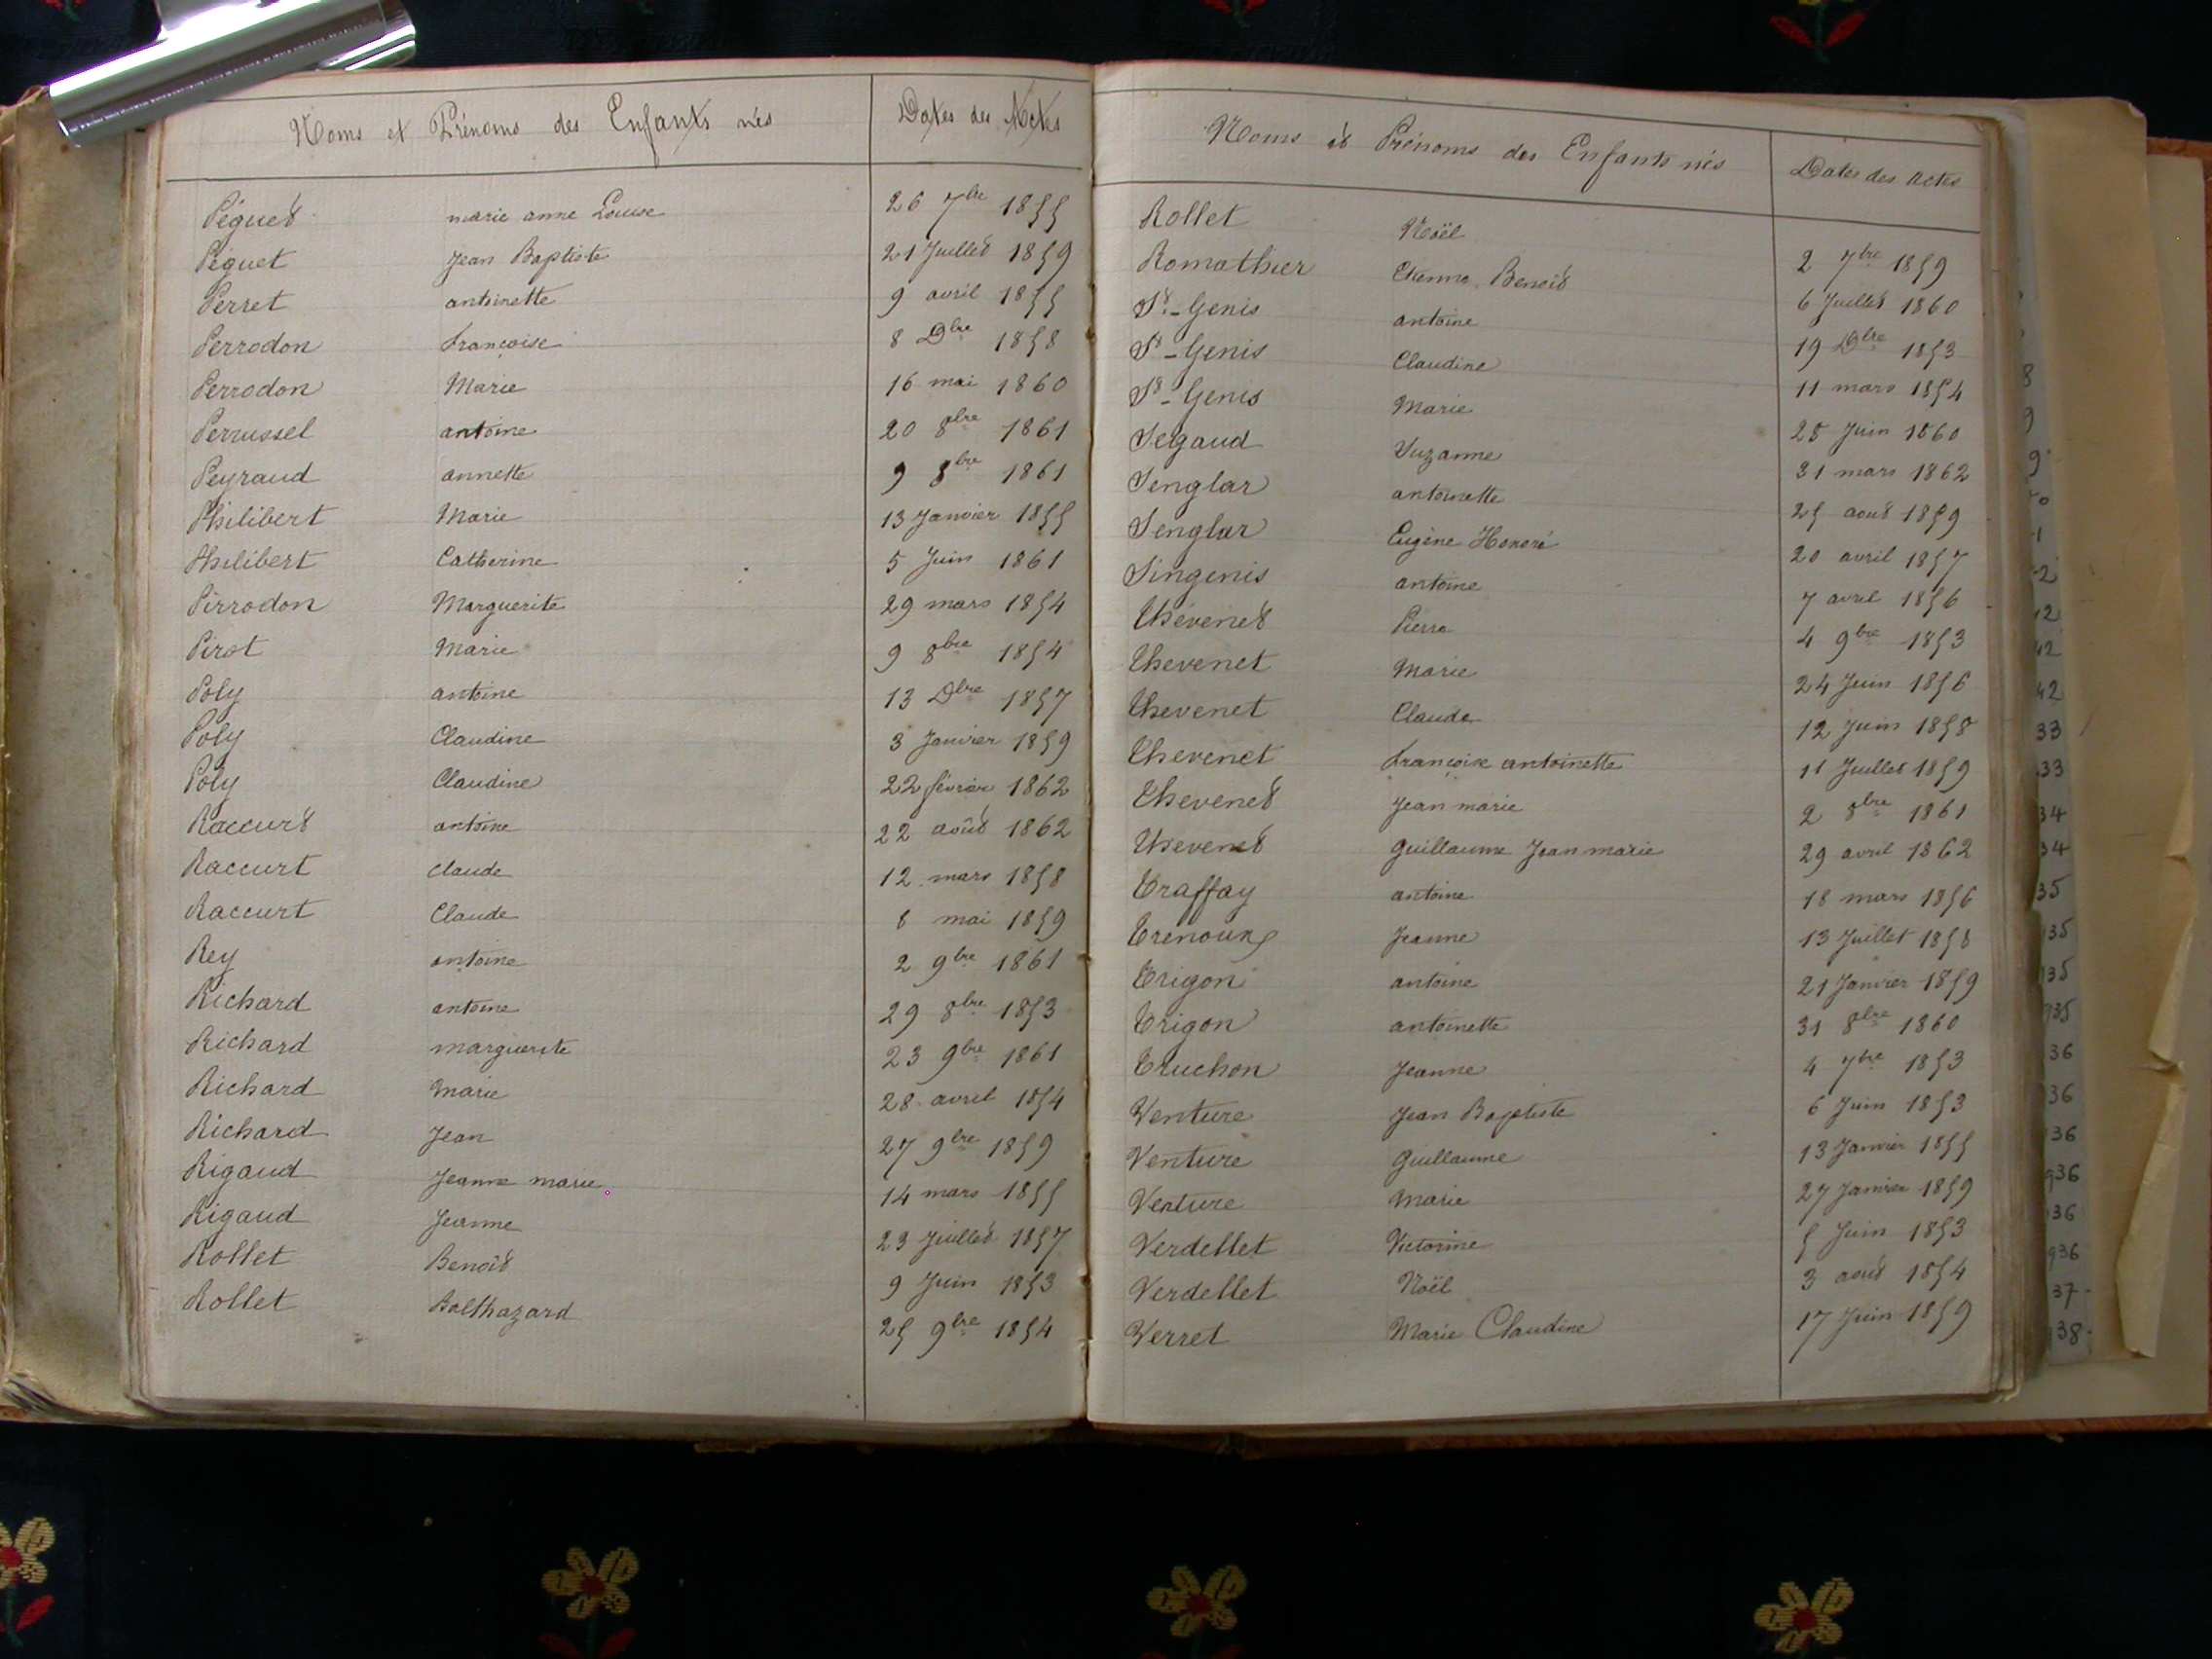 Noms et Prénoms des Enfants nés Dates des Actes
Péguet marie anne Louise 26 7bre 1855
Péguet Jean Baptiste 21 Juillet 1859
Perret antoinette 9 avril 1855
Perrodon françoise 8 Dbre 1858
Perrodon Marie 16 mai 1860
Perrussel antoine 20 8bre 1861
Peyraud annette 9 8bre 1861
Philibert Marie 13 Janvier 1855
Philibert Catherine 5 Juin 1861
Pirrodon Marguerite 29 mars 1854
Pirot Marie 9 8bre 1854
Poly antoine 13 Dbre 1857
Poly Claudine 3 Janvier 1859
Poly Claudine 22 février 1862
Raccurt antoine 22 août 1862
Raccurt claude 12 mars 1858
Raccurt Claude 8 mai 1859
Rey antoine 2 9bre 1861
Richard antoine 29 8bre 1853
Richard marguerite 23 9bre 1861
Richard Marie 28 avril 1854
Richard Jean 27 9bre 1859
Rigaud Jeanne marie 14 mars 1855
Rigaud Jeanne 23 Juillet 1857
Rollet Benoît 9 Juin 1853
Rollet Balthazard 25 9bre 1854
Noms et Prénoms des Enfants nés Dates des Actes
Rollet Noël 2 7bre 1859
Romathier Etienne Benoit 6 Juillet 1860
St-Genis antoine 19 Dbre 1853
St-Genis Claudine 11 mars 1854
St-Genis Marie 25 Juin 1860
Segaud Suzanne 31 mars 1862
Senglar antoinette 25 aout 1859
Senglar Eugène Honoré 20 avril 1857
Singenis antoine 7 avril 1856
Thévenet Pierre 4 9bre 1853
Thevenet Marie 24 Juin 1856
Thevenet Claude 12 Juin 1858
Thevenet françoise antoinette 11 Juillet 1859
Thevenet Jean marie 2 8bre 1861
Thevenet Guillaume Jean marie 29 avril 1862
Traffay antoine 18 mars 1856
Trenoux Jeanne 13 Juillet 1858
Trigon antoine 21 Janvier 1859
Trigon antoinette 31 8bre 1860
Truchon Jeanne 4 7bre 1853
Venture Jean Baptiste 6 Juin 1853
Venture Guillaume 13 Janvier 1855
Venture Marie 27 Janvier 1859
Verdellet Victorine 5 Juin 1853
Verdellet Noël 3 août 1854
Verret Marie Claudine 17 Juin 1859